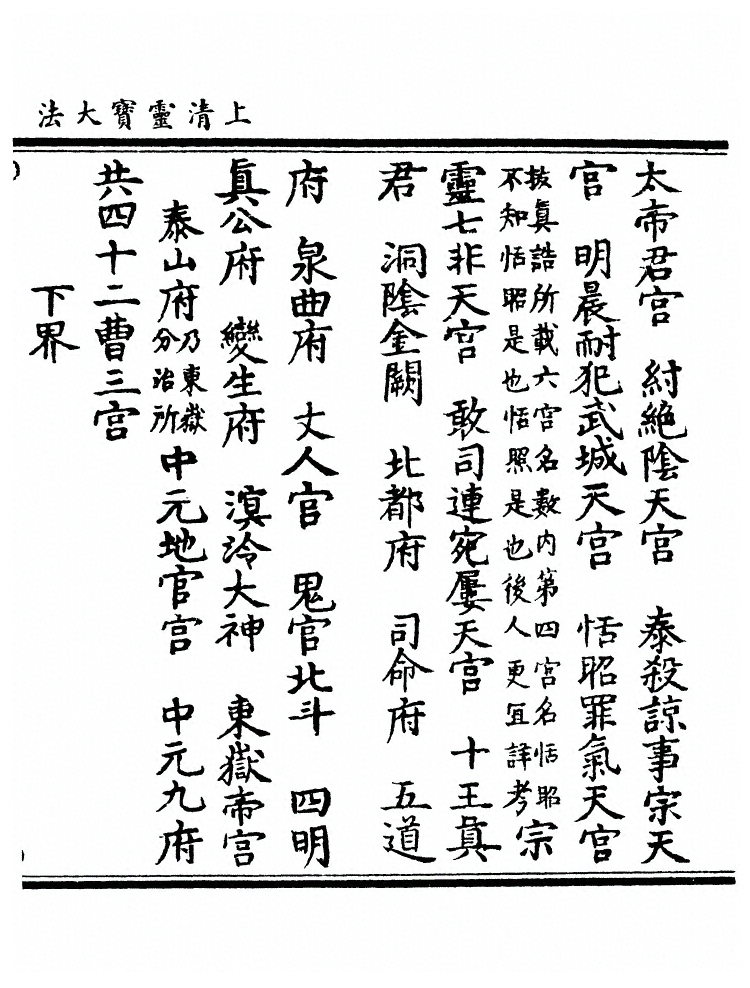 上清靈寶大法
太帝君宫　紂絶陰天宫　泰殺諒事宗天
宫　明晨耐犯武城天宫　恬昭罪氣天宫
按眞誥所載六宫名數内第四宫名恬昭
不知恬昭是也恬照是也後人更宜詳考宗
靈七非天宫　敢司連宛屢天宫　十王眞
君　洞陰金闕　北都府　司命府　五道
府　泉曲府　丈人官　鬼官北斗　四明
眞公府　變生府　溟泠大神　東嶽帝宫
泰山府乃東嶽分治所中元地官宫　中元九府
共四十二曹三宫
下界